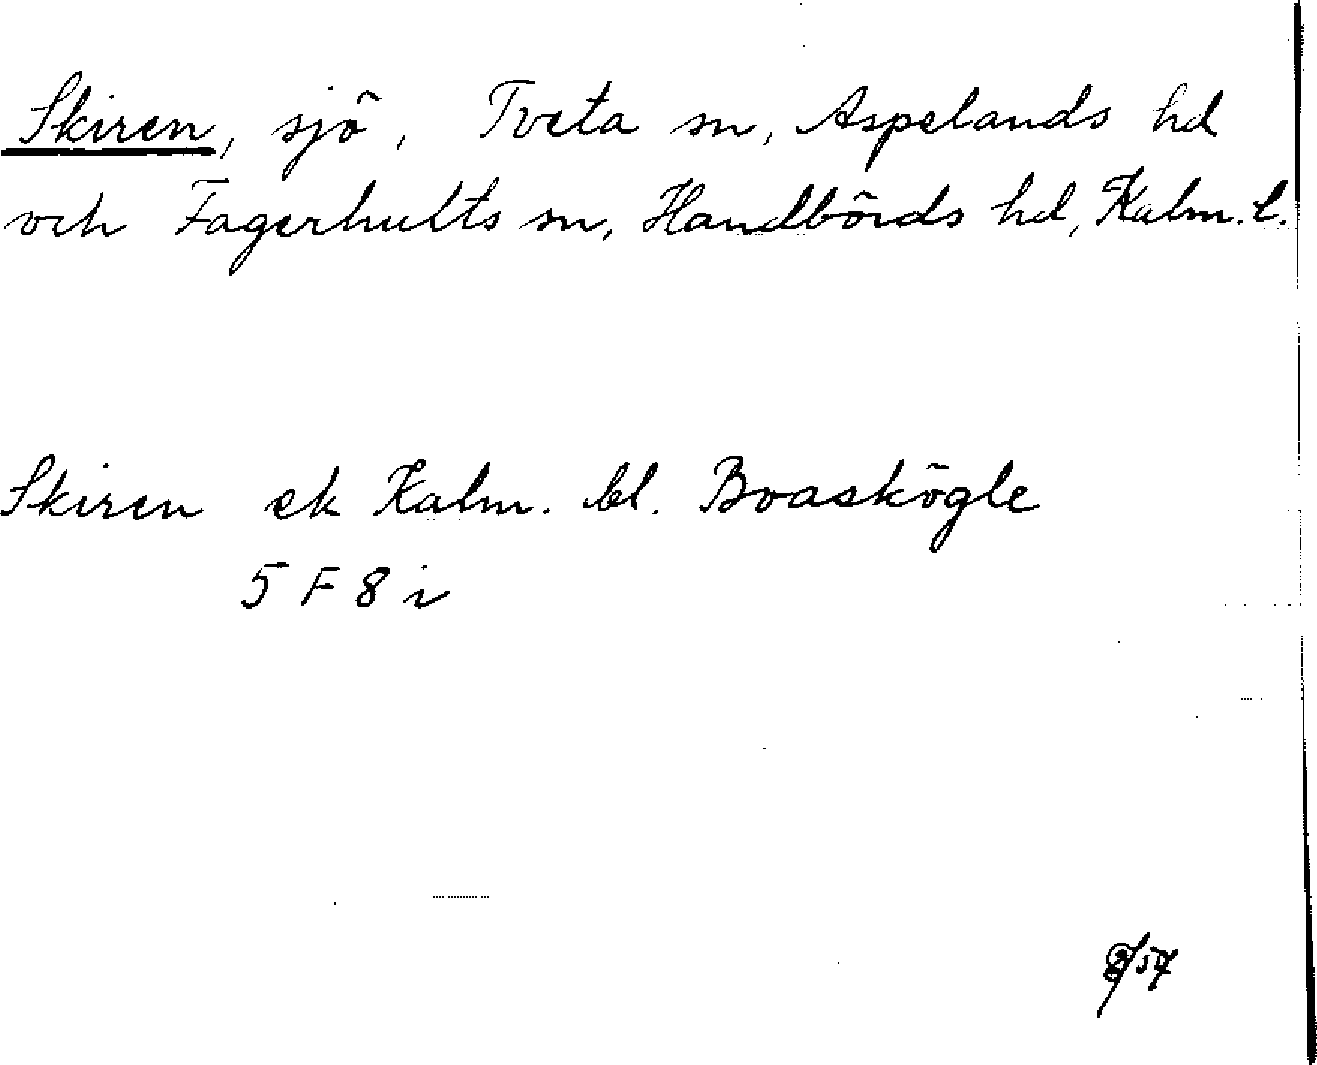 Skiren, sjö, Tveta sn, Aspelands hd
och Fagerhults sn, Handbörds hd, Kalm. l.
Skiren ek Kalm. bl. Boaskögle
5 F 8 i